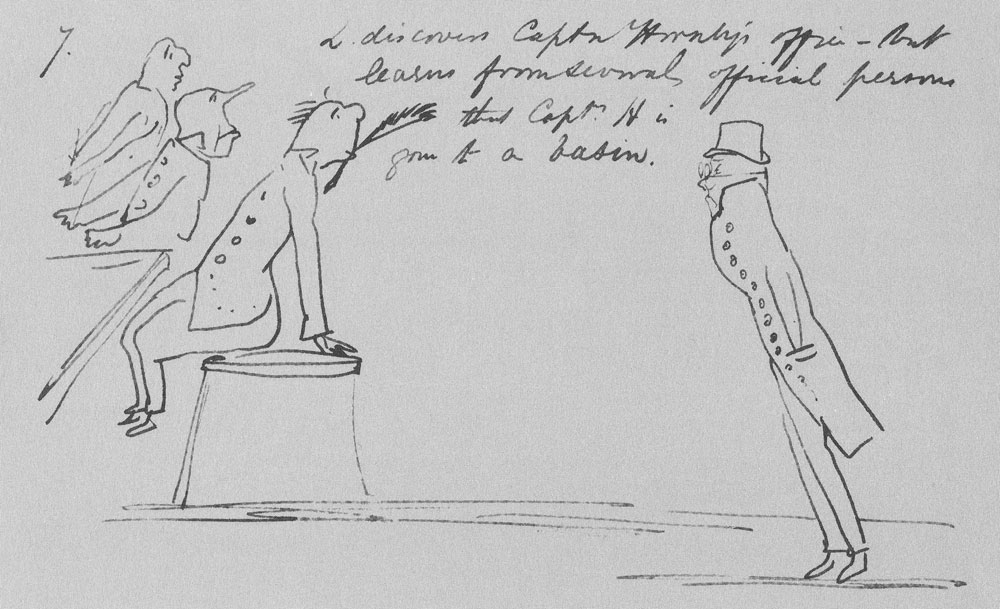 7.
L. discovers Captn Hornby's office - but
learns from several official persons
that Captn. H is
gone to a basin.